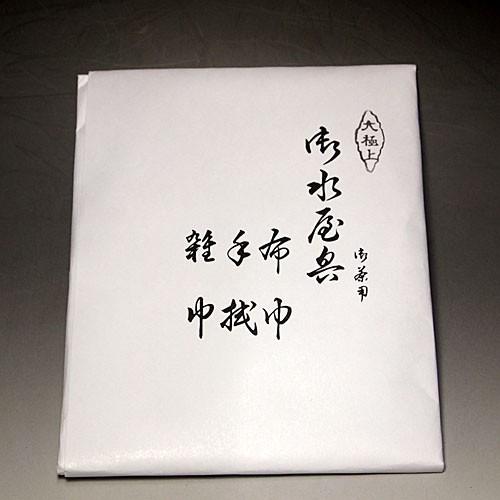 大極上
御茶用
御水屋具
布巾
手拭
雑巾